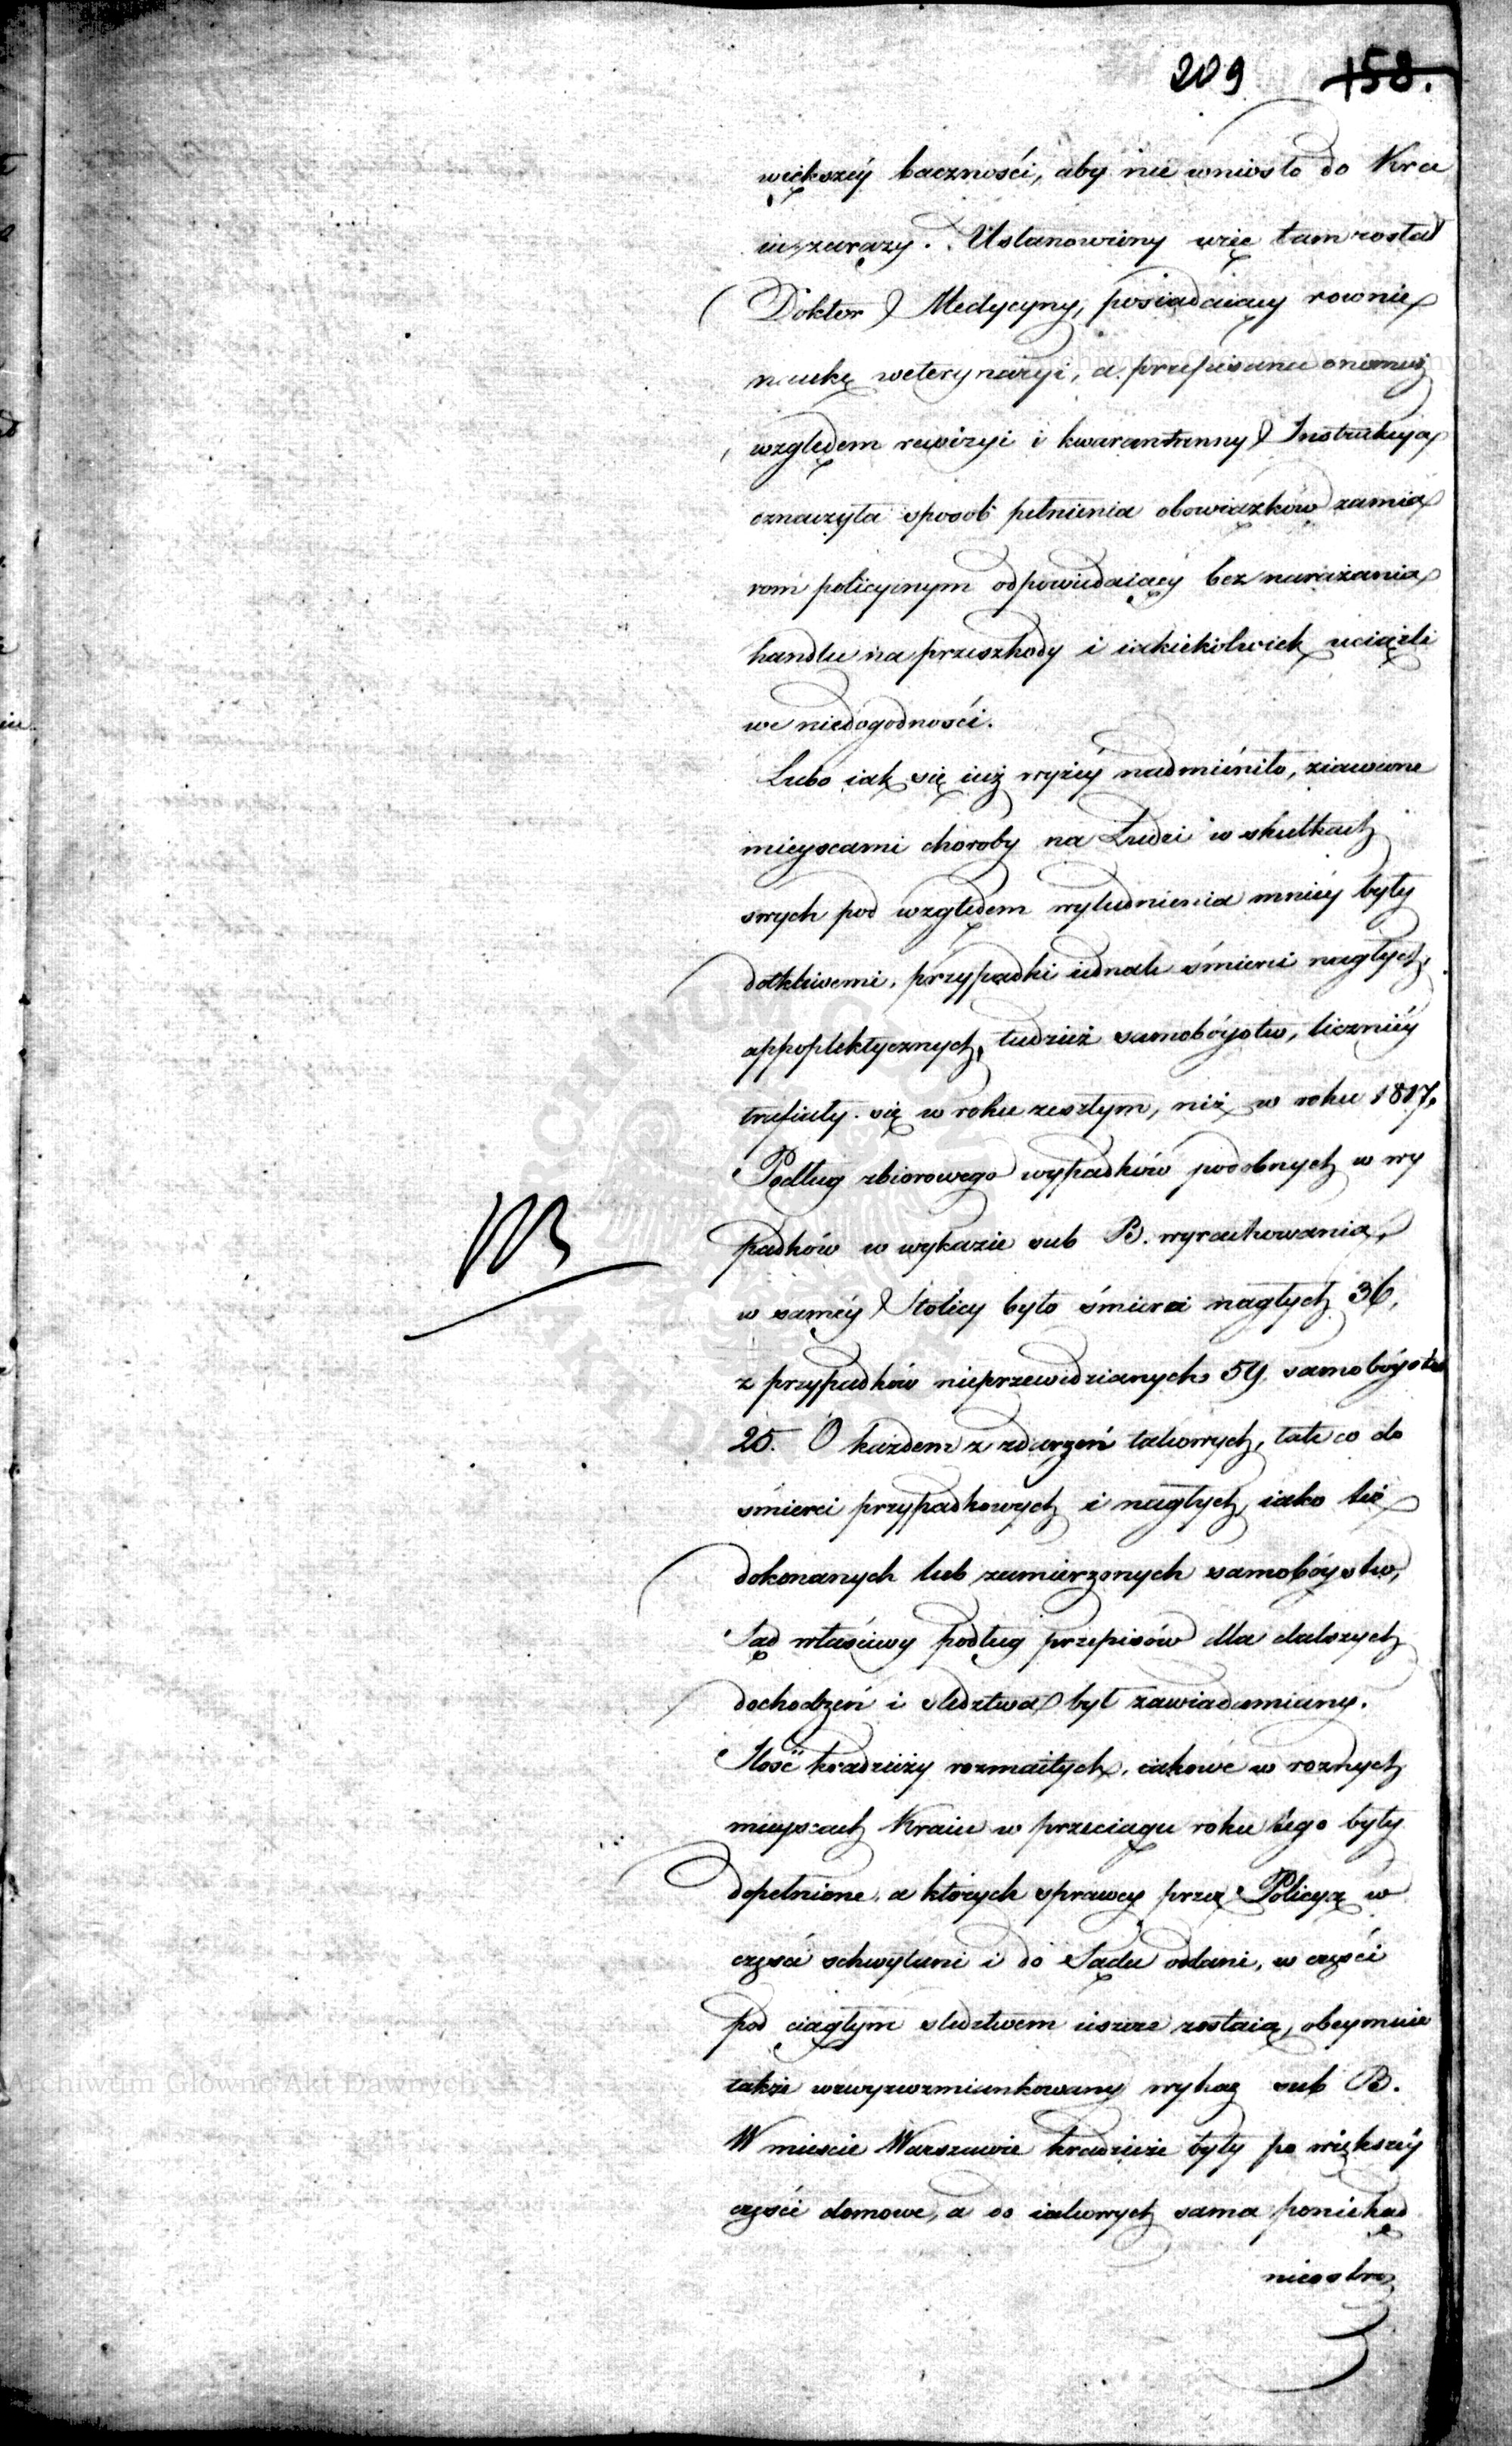 209 158.
większéy baczności, aby nie wniosło do Kra
iu zarazy. Ustanowiony więc tam został
Doktor Medycyny, posiadaiący rownie
naukę weterynaryi, a przepisana onemuż
względem rewizyi i kwarantanny Instrukcya
oznaczyła sposob pełnienia obowiązków zamia
rom policyinym odpowiedaiący bez narażania
handlu na przeszkody i iakiekolwiek uciążli
we niedogodności.
Lubo iak się iuż wyżéy nadmieniło, ziawione
mieyscami choroby na Ludzi w skutkach
swych pod względem wyludnienia mniéy były
dotkliwemi, przypadki iednak śmierci nagłych,
appoplektycznych, tudzież samobóystw, liczniéy
trafiały się w roku zeszłym, niż w roku 1817.
Podług zbiorowego wypadków podobnych w wy
padków w wykazie sub B. wyrachowania,
w saméy Stolicy było śmierci nagłych 36,
z przypadków nieprzewidzianych 59, samobóystw
25. O każdem z zdarzeń takowych, tak co do
śmierci przypadkowych i nagłych, iako też
dokonanych lub zamierzonych samobóystw,
Sąd właściwy podług przepisów dla dalszych
dochodzeń i sledztwa był zawiadamiany.
Ilość kradzieży rozmaitych, iakowe w roznych
mieyscach Kraiu w przeciągu roku tego były
dopełnione, a których sprawcy przez Policyą w
części schwytani i do Sądu oddani, w części
pod ciągłym sledztwem ieszcze zostaią, obeymuie
także wzwyzwzmiankowany wykaz sub B.
W mieście Warszawie kradzieże były po większéy
części domowe, a do iakowych sama poniekąd
nieostroż
Archiwum Główne Akt Dawnych